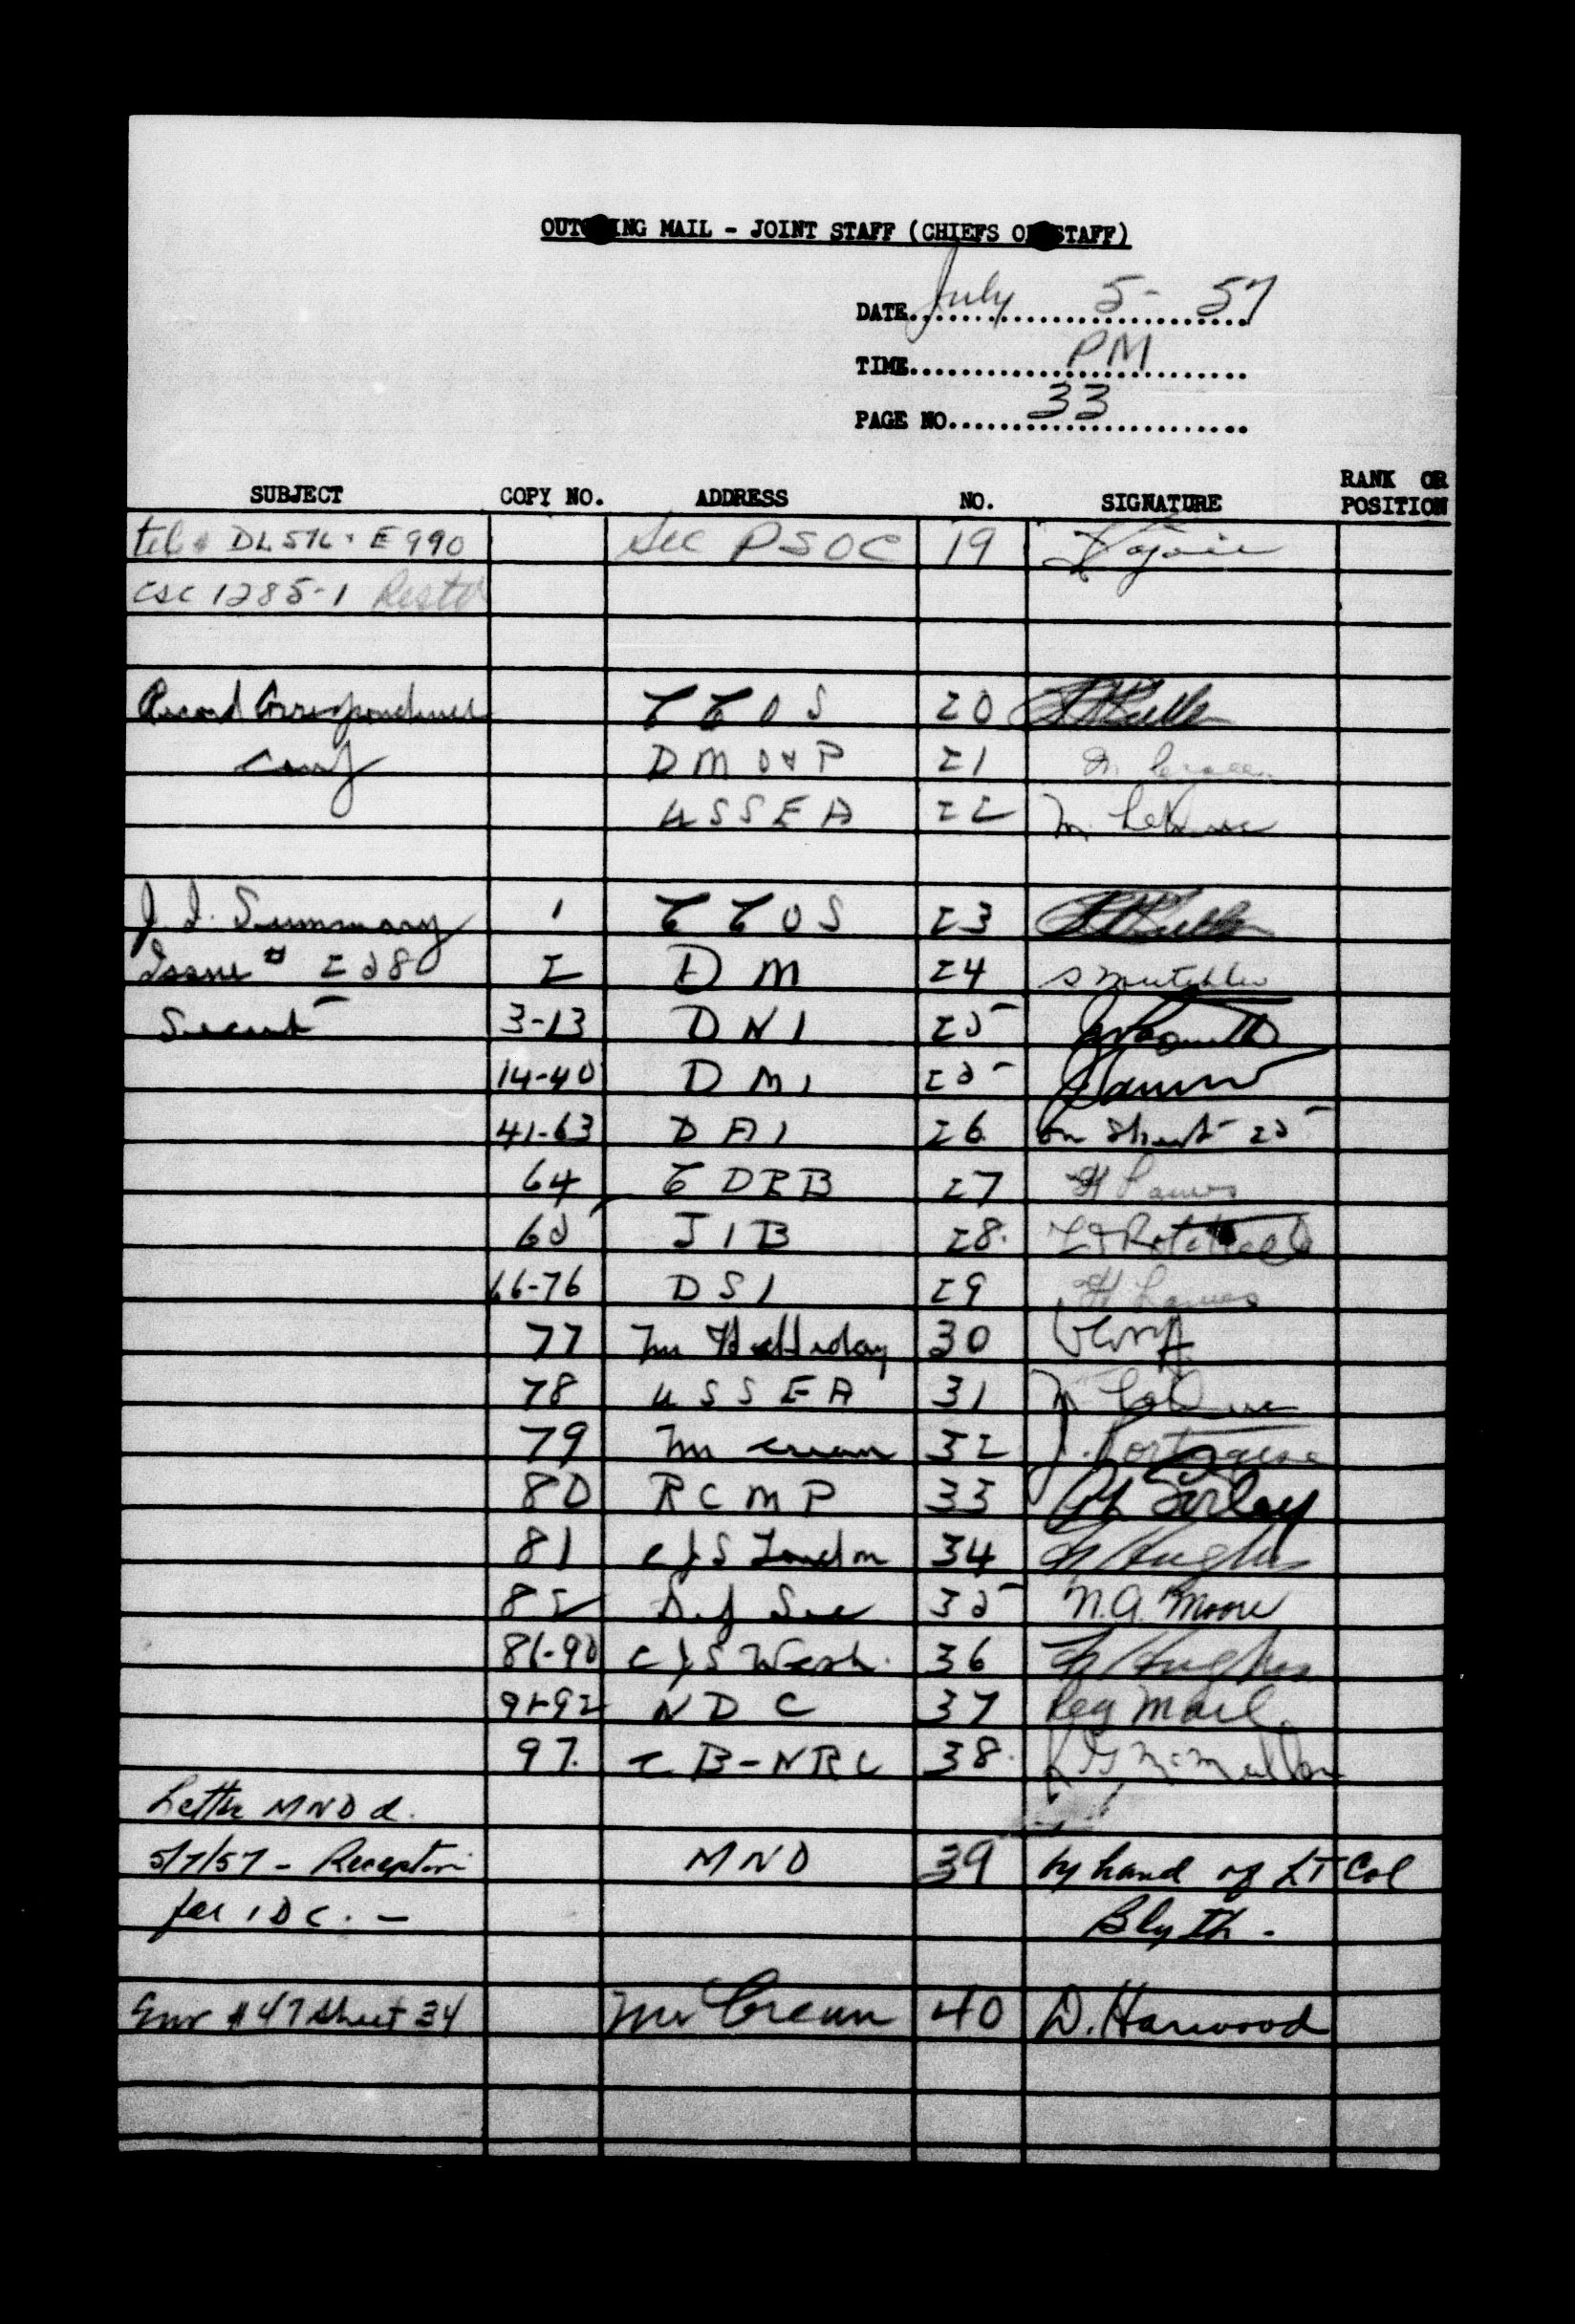 OUTGOING MAIL - JOINT STAFF (CHIEFS OF STAFF)
DATE July 5 - 57
TIME PM
PAGE NO. 33
SUBJECT COPY NO. ADDRESS NO. SIGNATURE RANK OR POSITION
DL 576 · E 990 Sec PSOC 19
CSC 1285-1
Record Correspondence CCOS 20
Conf DMO&P 21
USSEA 22
J.I. Summary 1 CCOS 23
Issue # 258 2 DM 24
Secret 3-13 DNI 25
14-40 DMI 25
41-63 DAI 26 on Sheet 25
64 CDRB 27
65 JIB 28
66-76 DSI 29
77 Mr Halliday 30
78 USSEA 31
79 Mr Crean 32 J. Portugese
80 RCMP 33
81 CJS London 34 Hughes
85 Sec 35 N.A. Moore
86-90 CJS Wash. 36 Hughes
91-92 NDC 37 Reg Mail.
97. CB-NRC 38. McMullan
Letter MND d.
5/7/57 - Reception MND 39 by hand of LT Col
for IDC. - Blyth.
Env # 47 Sheet 34 Mr Crean 40 D. Harwood